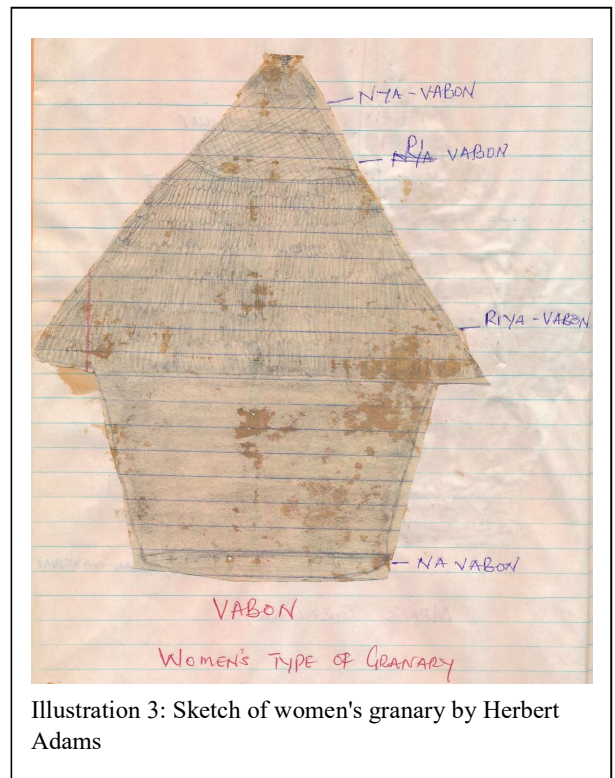 NYA-VABON
PI
NYA VABON
RIYA-VABON
NA VABON
VABON
WOMEN'S TYPE OF GRANARY
Illustration 3: Sketch of women's granary by Herbert
Adams